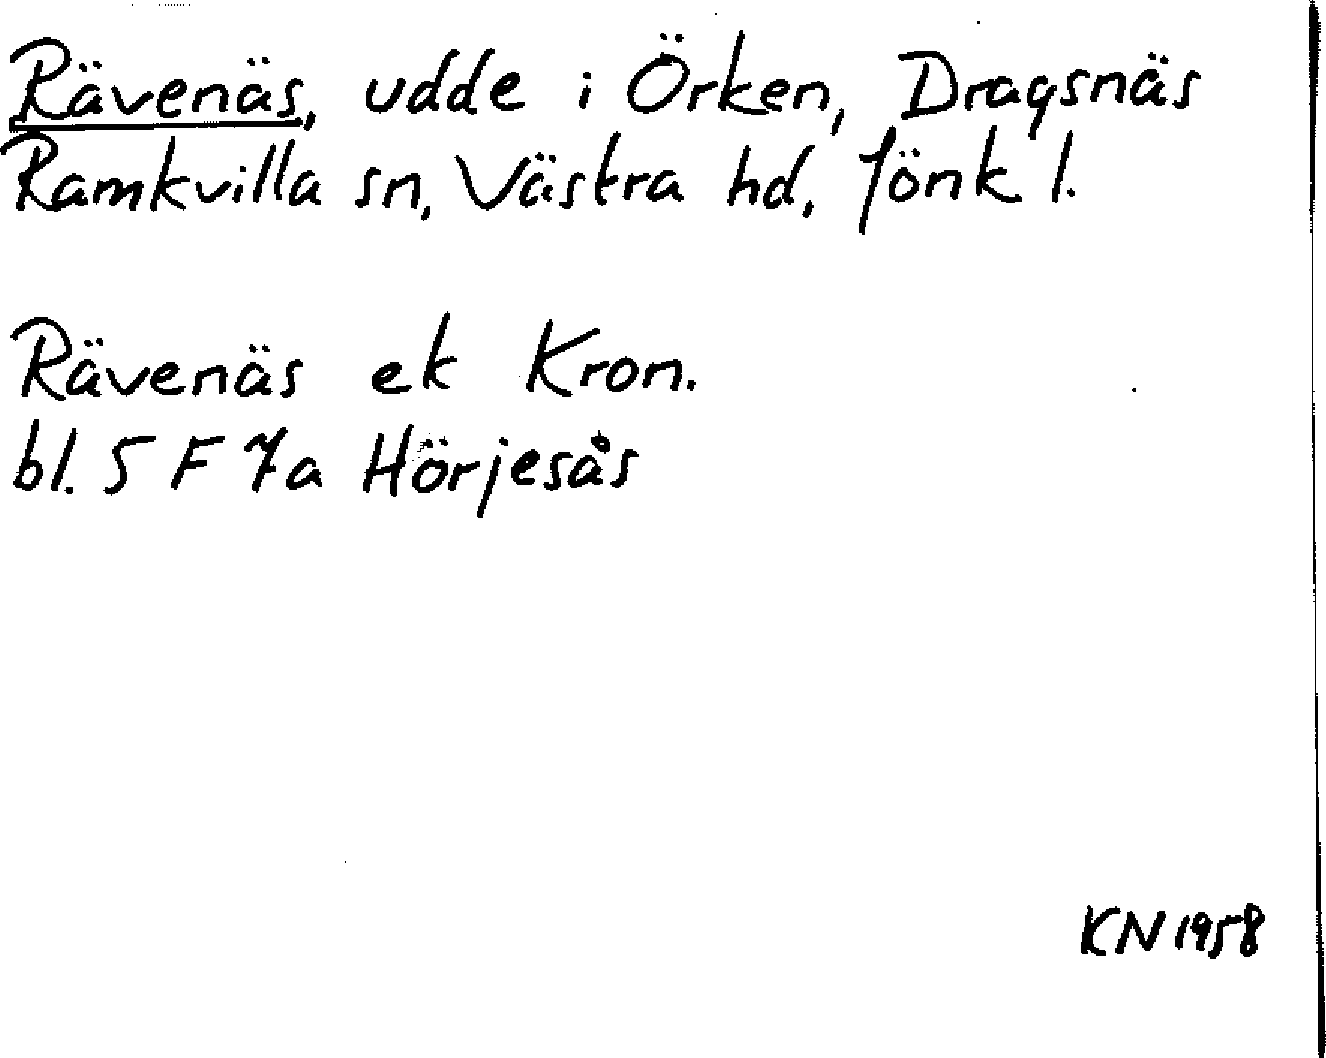 Rävenäs, udde i Örken, Dragsnäs
Ramkvilla sn, Västra hd, Jönk l.
Rävenäs ek Kron.
bl. 5 F 7a Hörjesås
KN 1958